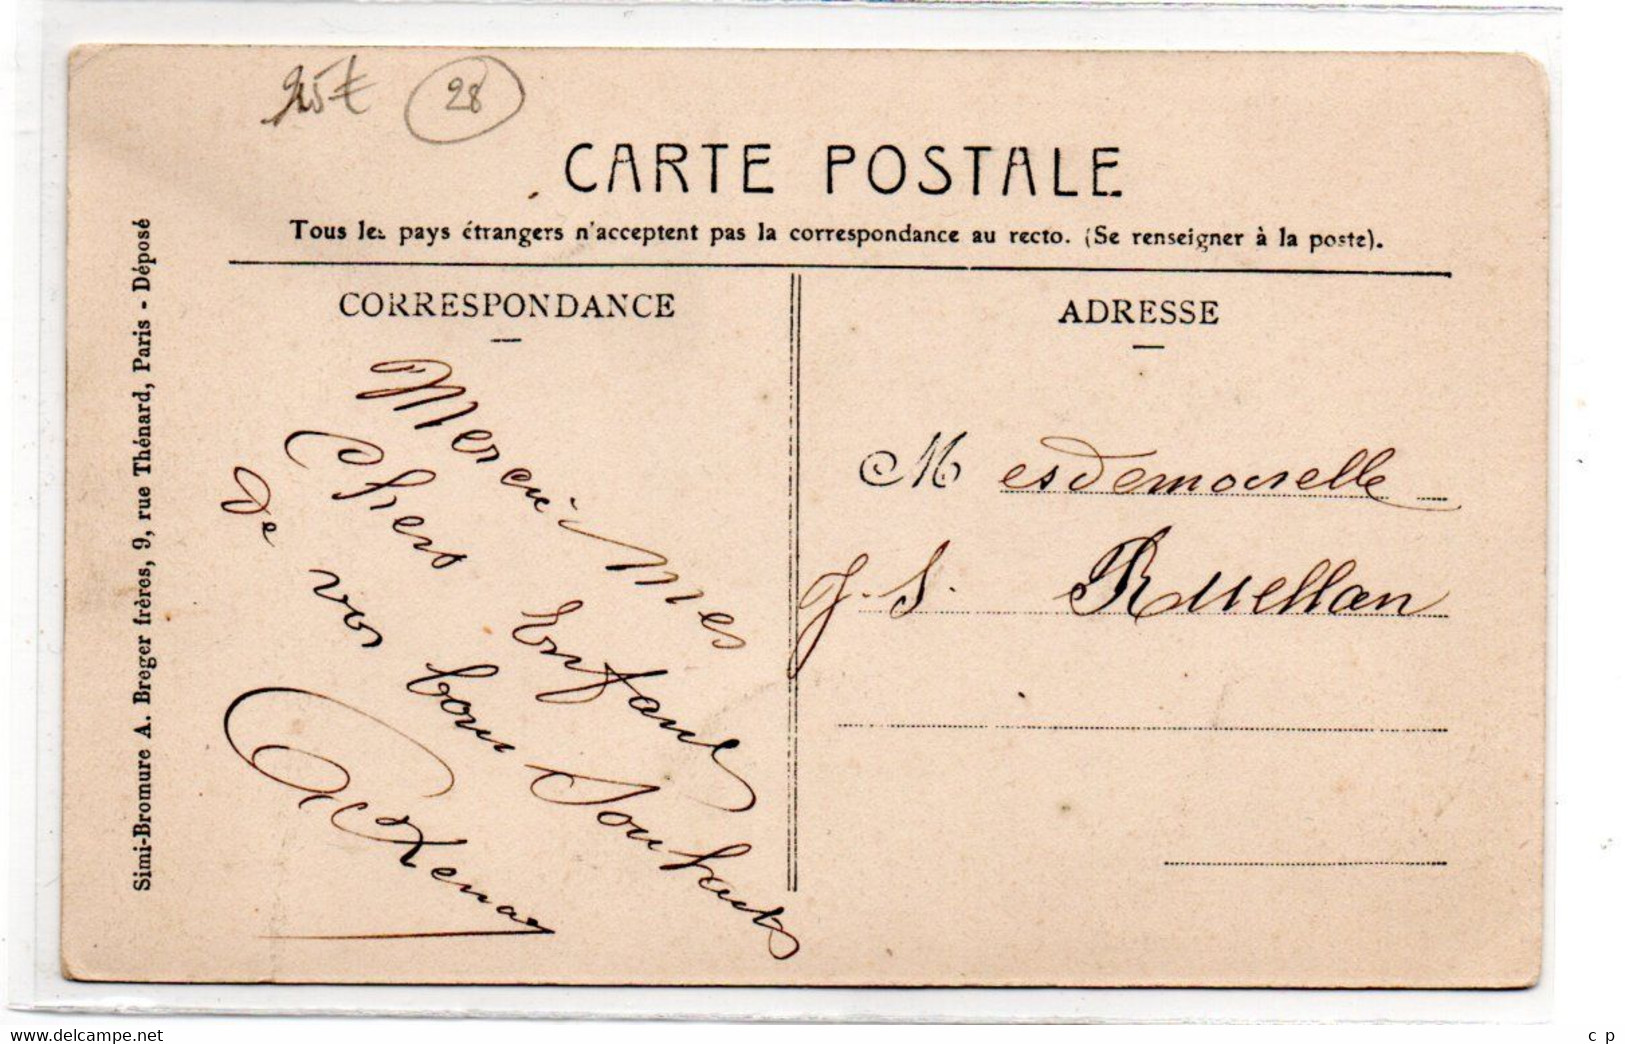 28
CARTE POSTALE
Tous les pays étrangers n'acceptent pas la correspondance au recto. (Se renseigner à la poste).
CORRESPONDANCE
Merci mes
Chers Enfants
De vos bons Souhaits
ADRESSE
Mesdemoiselle
J. S. Ruellan
Simi-Bromure A. Breger frères, 9, rue Thénard, Paris - Déposé
www.delcampe.net
c p